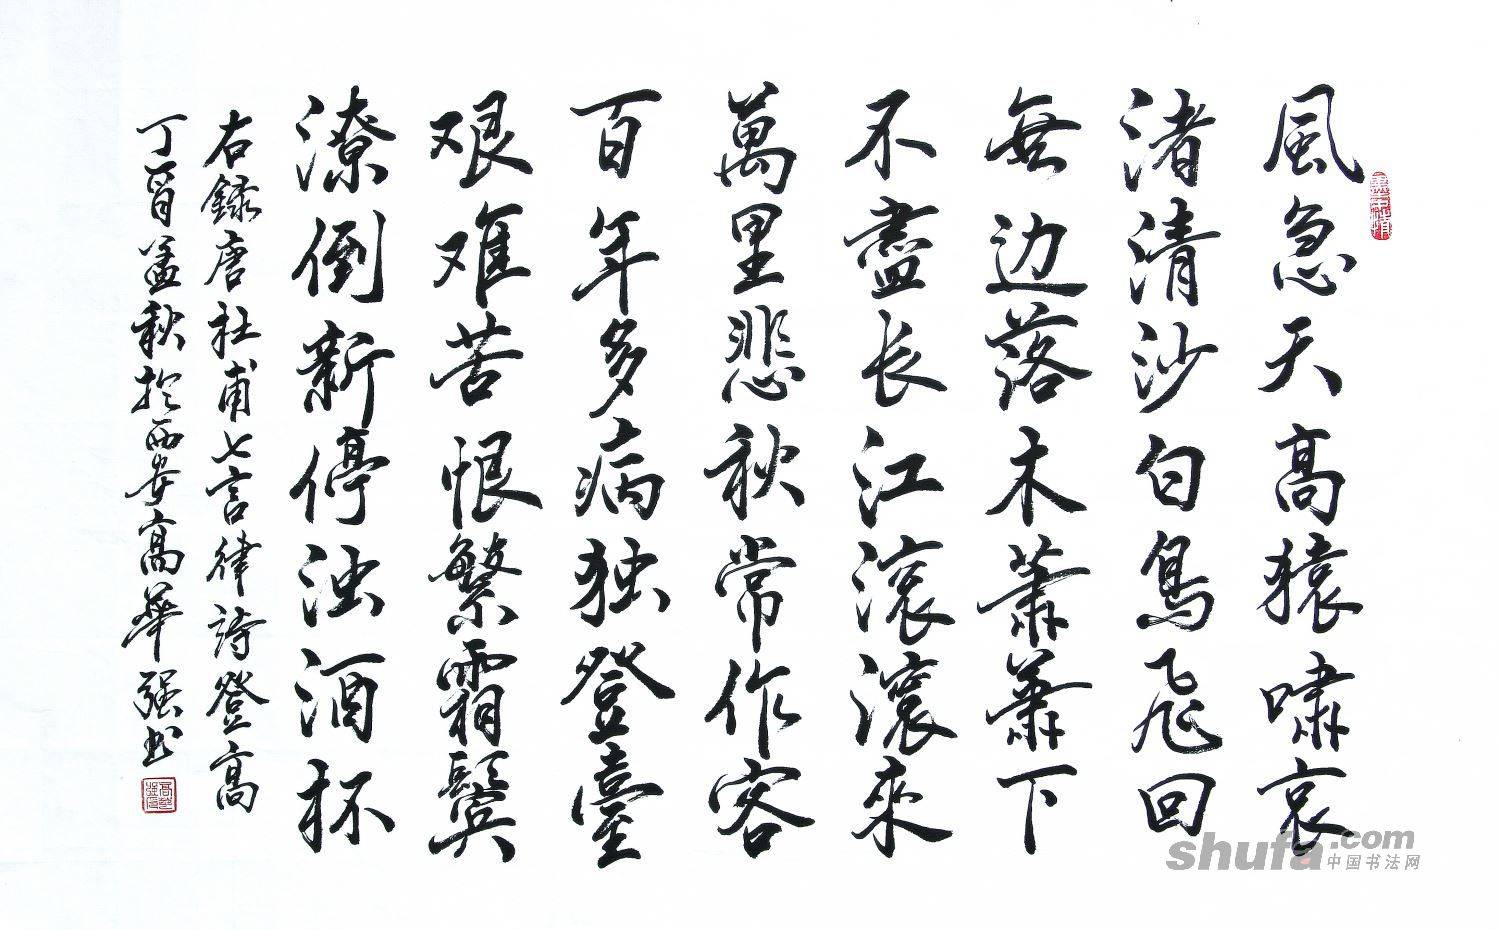 風急天高猿嘯哀
渚清沙白鳥飛回
無边落木蕭蕭下
不盡长江滚滚來
萬里悲秋常作客
百年多病独登臺
艰难苦恨繁霜鬢
潦倒新停浊酒杯
右錄唐杜甫七言律詩登高
丁酉孟秋於西安高華强书
shufa.com
中国书法网